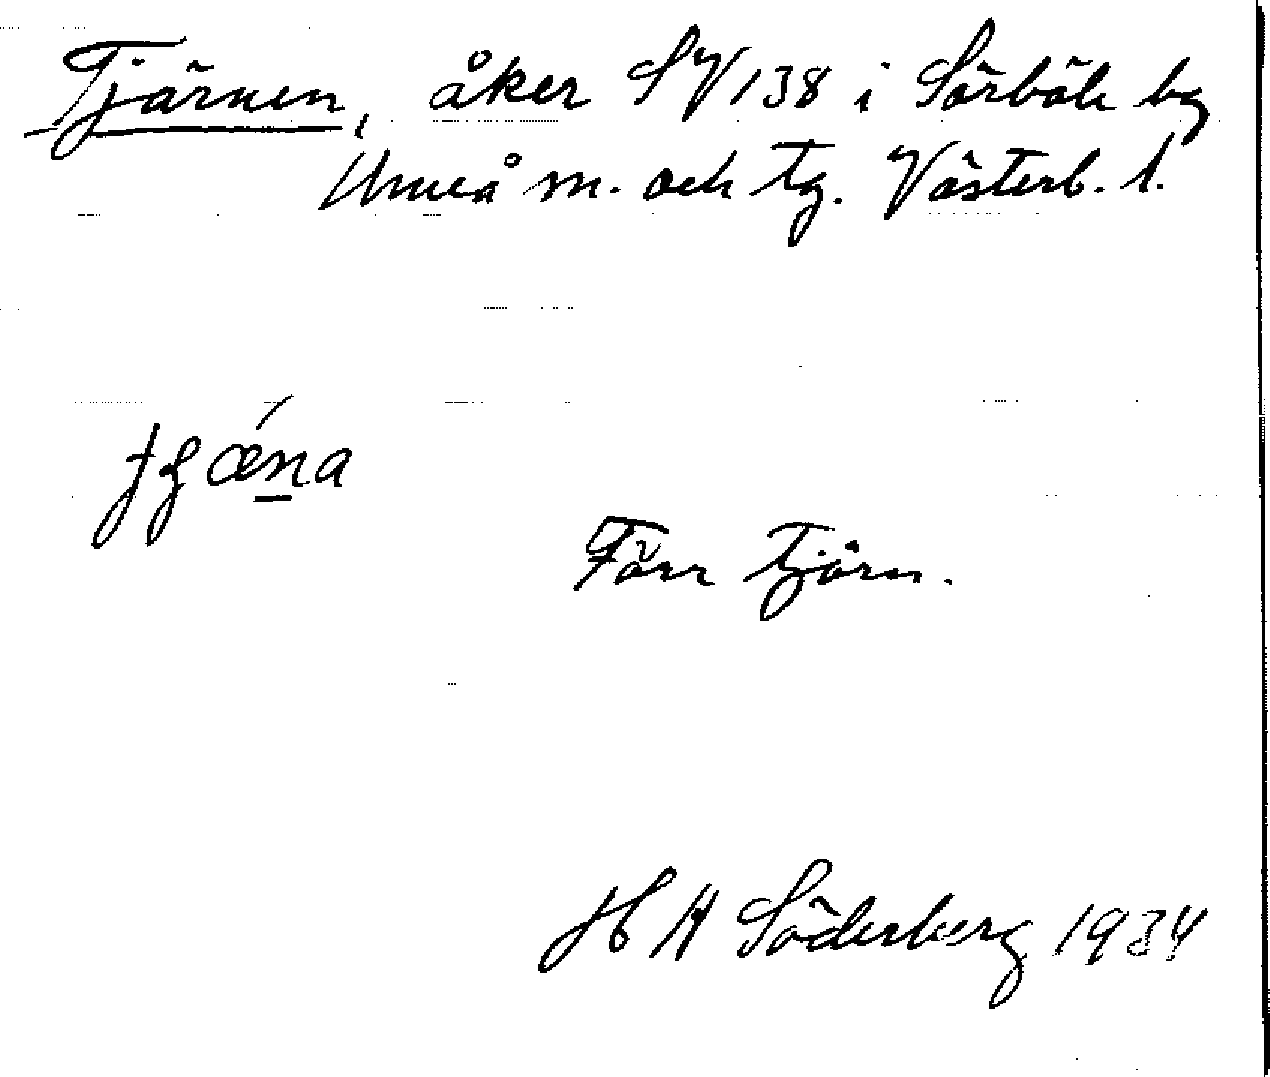 Tjärnen, åker SV 138 i Sörböle by
Umeå m. och tg. Västerb. l.
Förr tjärn.
H A Söderberg 1934